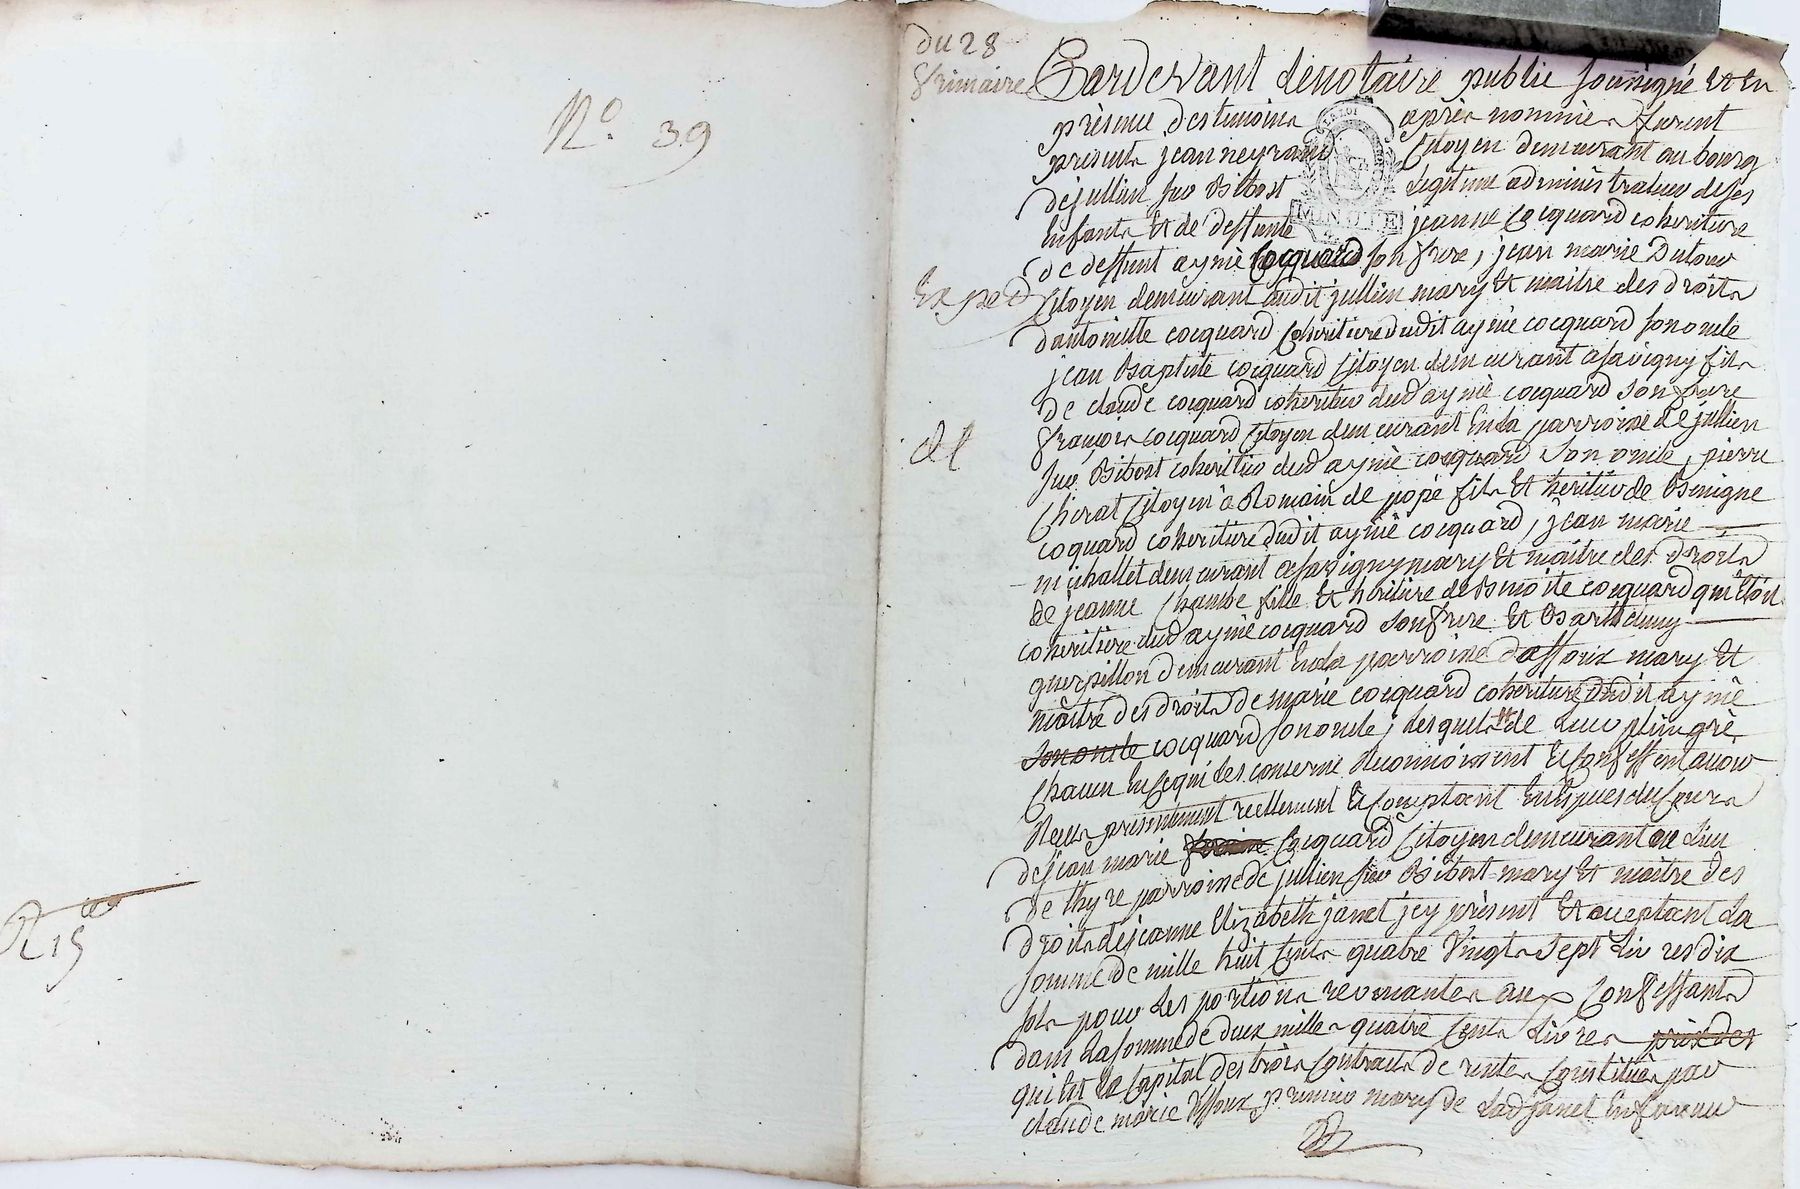 N.o 39
R 15
du 28
frimaire
Expedé
Pardevant le notaire public soussigné Et En
présence des temoins après nommés furent
presents jean neyrand Citoyen demeurant au bourg
de jullien sur Bibost Legitime administrateur de ses
Enfants Et de deffunte jeanne Cocquard coheritiere
de deffunt aymé Cocquard son frere, jean marie Dutour
Citoyen demeurant audit jullien mary Et maitre des droits
d'antoinette cocquard Coheritiere dudit aymé cocquard son oncle
jean Baptiste cocquard Citoyen demeurant a Savigny fils
de claude cocquard coheritier dud aymé cocquard son frere
françois cocquard Citoyen demeurant En la parroisse de jullien
sur Bibost coheritier dud aymé cocquard Son oncle, pierre
Cherat Citoyen a Romain de popé fils Et heritier de Benigne
coquard coheritiere dudit aymé cocquard, jean marie
michallet demeurant a Savigny mary Et maitre des Droits
de jeanne Chambe fille Et heritiere de Benoite cocquard qui Etoit
coheritiere dud aymé cocquard son frere Et Barthelemy
guerpillon demeurant En la parroisse d'affoux mary Et
maitre des droits de marie cocquard coheritiere dudit aymé
son oncle cocquard son oncle; Lesquels de Leur plein gré
Chacun En ce qui les conserne Reconnoissent Et Confessent avoir
Reçu presentement reellement Et Comptant En Especes du Cours
de jean marie Cocquard Citoyen demeurant au Lieu
de thyre parroisse de jullien sur Bibost mary Et maitre des
droits de jeanne Elizabeth janet jcy présent Et acceptant La
somme de mille huit Cents quatre Vingts sept Livres dix
sols pour Les portions revenantes aux Confessants
dans La somme de deux milles quatre Cents Livres prix des
qui Est Le Capital des trois Contracts de rentes Constitués par
claude marie premier mary de Lad janet En faveur